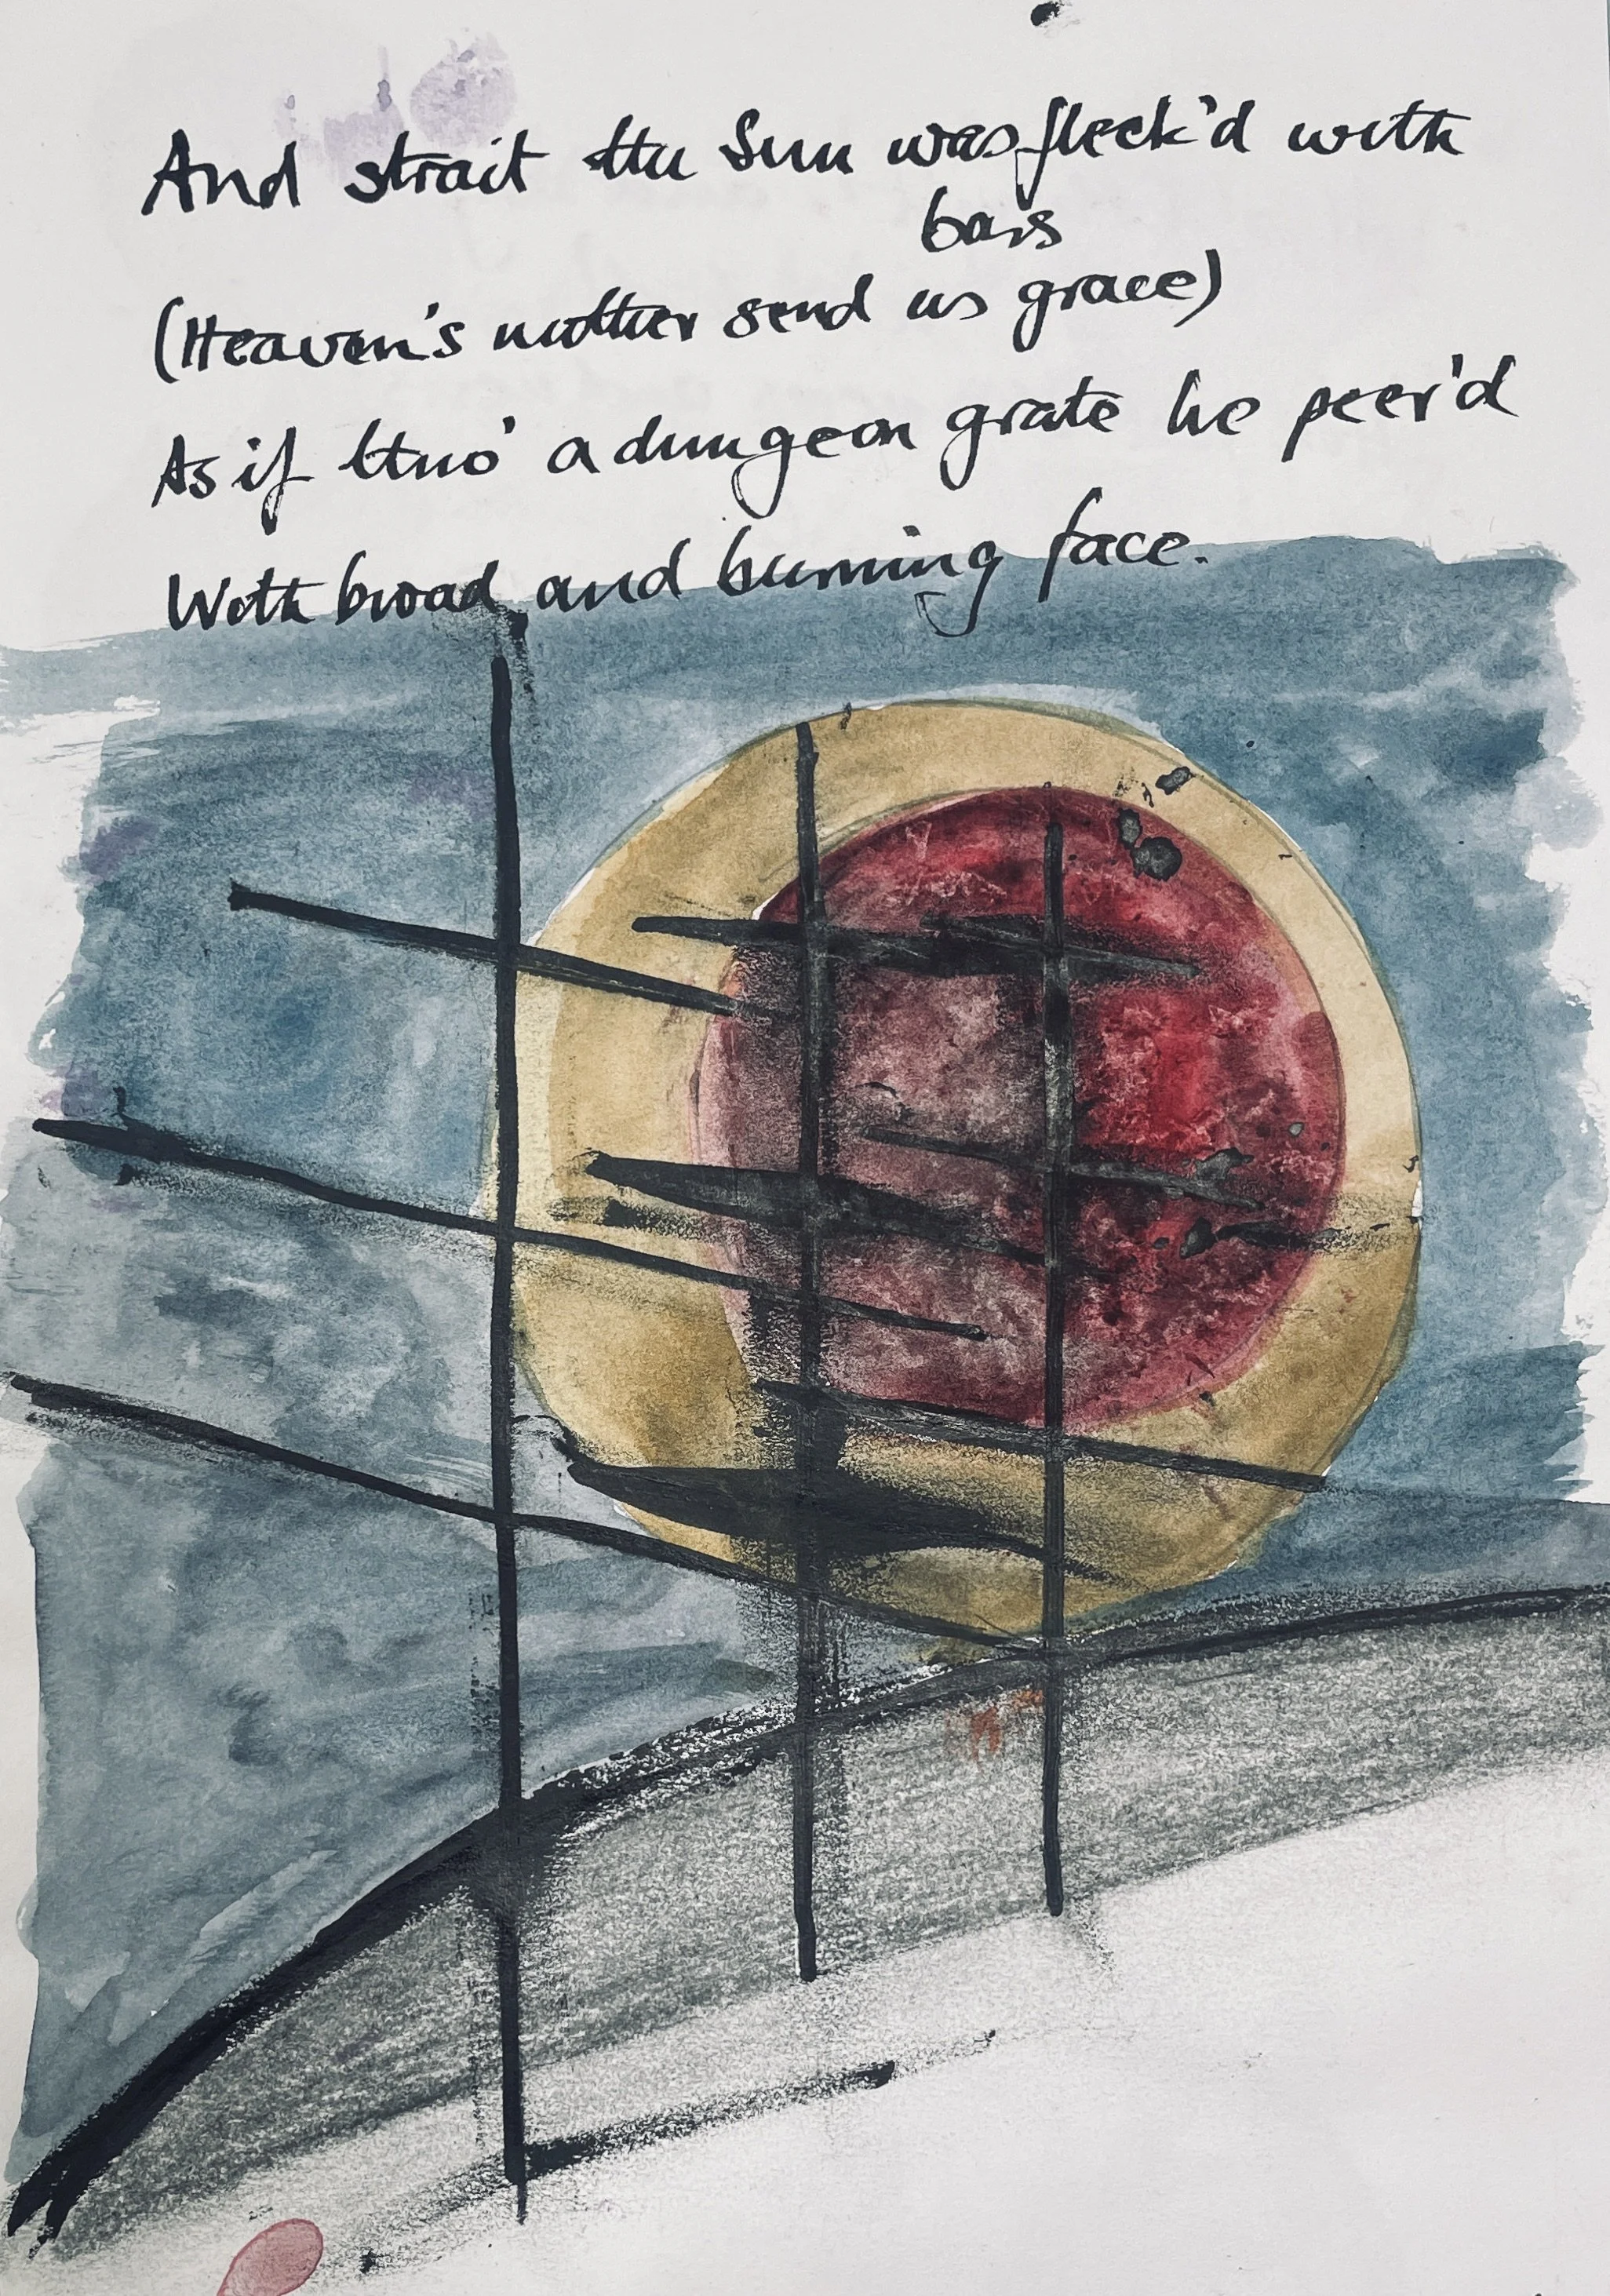 And strait the Sun was fleck'd with
bars
(Heaven's mother send us grace)
As if thro' a dungeon grate he peer'd
With broad and burning face.